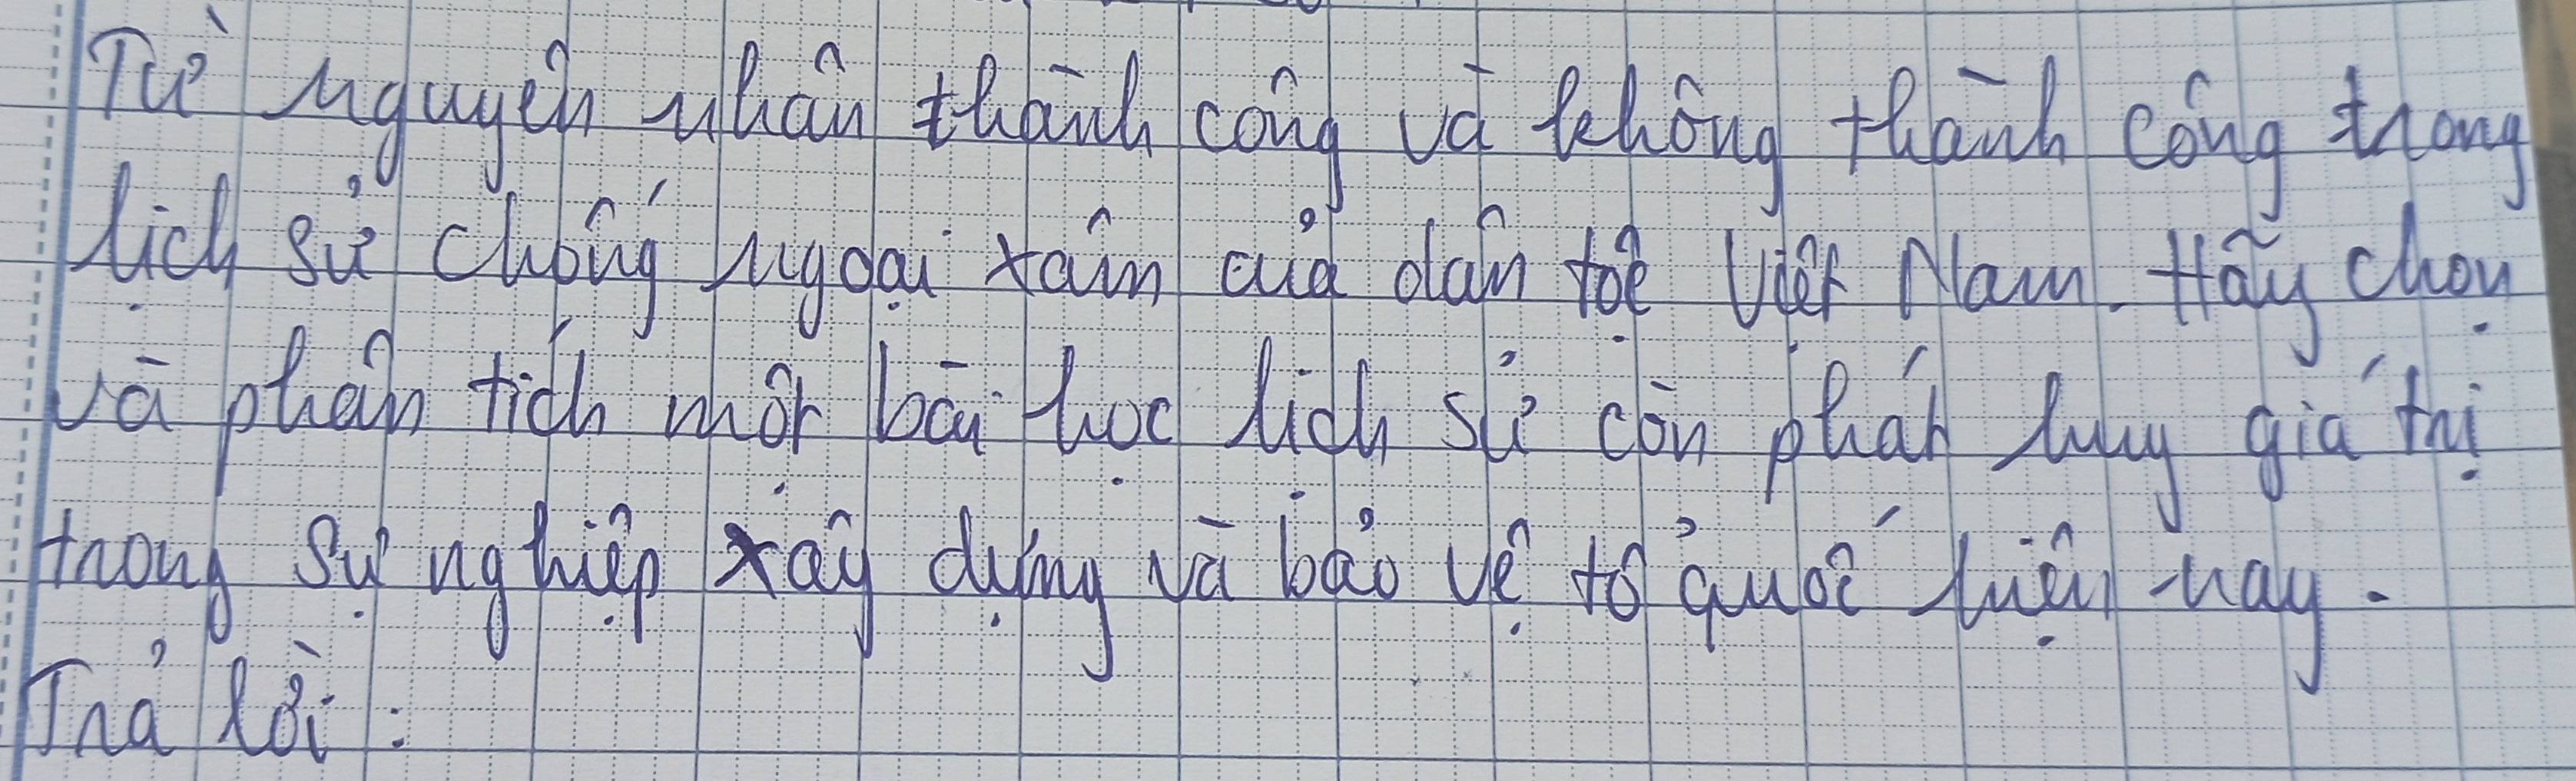 Từ nguyên nhân thành công và không thành công trong
lịch sử chống ngoại xâm của dân tộc Việt Nam. Hãy chọn
và phân tích một bài học lịch sử còn phát huy giá trị
trong sự nghiệp xây dựng và bảo vệ tổ quốc hiện nay.
Trả lời: